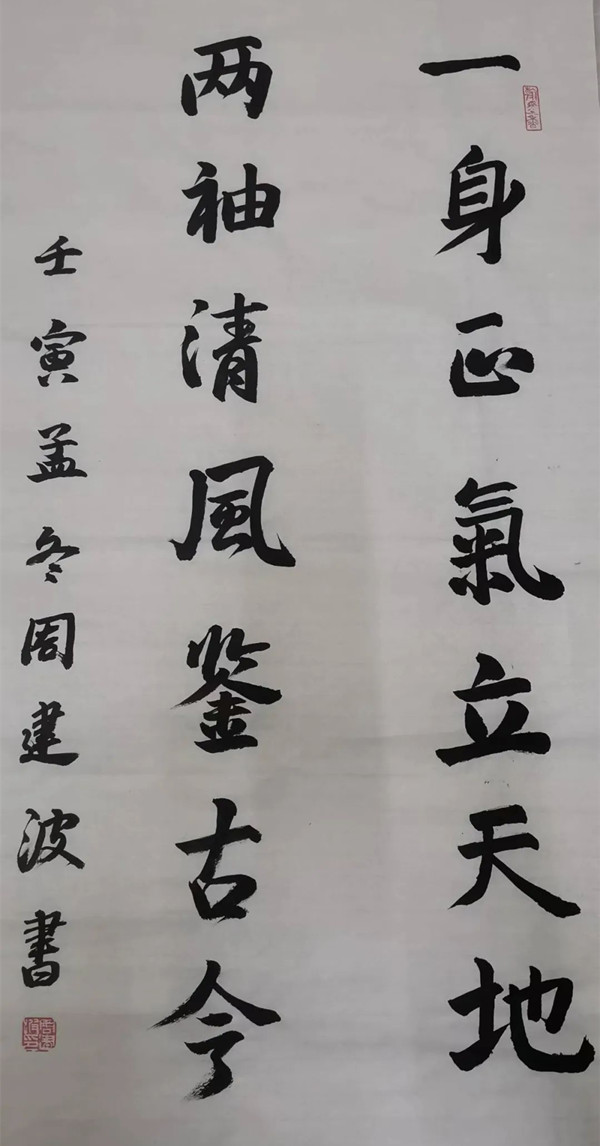 一身正氣立天地
两袖清風鉴古今
壬寅孟冬周建波書